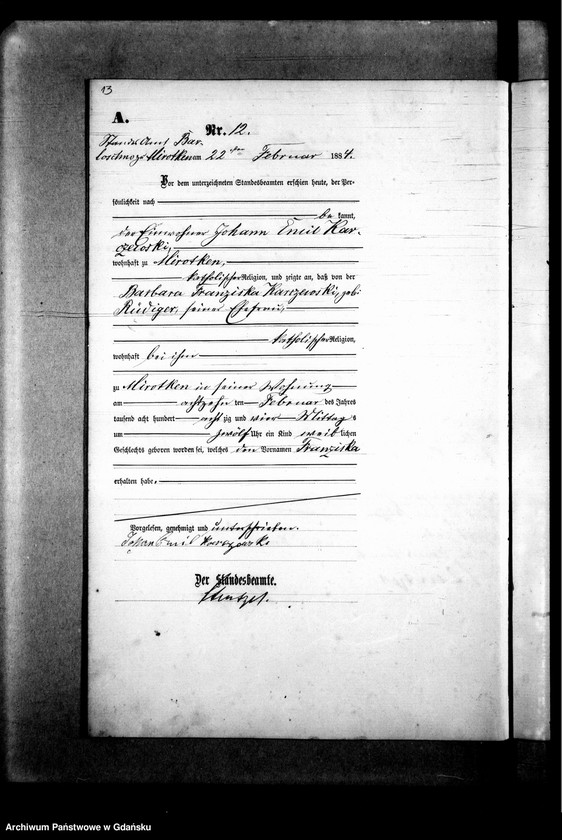 13
A.
Nr. 12.
Standes Amt Bar
loschno zu Mirotken am 22 ten Februar 1884.
Vor dem unterzeichneten Standesbeamten erschien heute, der Per-
sönlichkeit nach
be kannt,
der Einwohner Johann Emil Kar-
czewski,
wohnhaft zu Mirotken,
katholischer Religion, und zeigte an, daß von der
Barbara Franziska Karczewski, geb.
Rüdiger, seiner Ehefrau,
katholischer Religion,
wohnhaft bei ihm
zu Mirotken in seiner Wohnung
am achtzehn ten Februar des Jahres
tausend acht hundert acht zig und vier Mittag s
um zwölf Uhr ein Kind weib lichen
Geschlechts geboren worden sei, welches den Vornamen Franziska
erhalten habe.
Vorgelesen, genehmigt und unterschrieben.
Johan Emil
Der Standesbeamte.
Archiwum Państwowe w Gdańsku